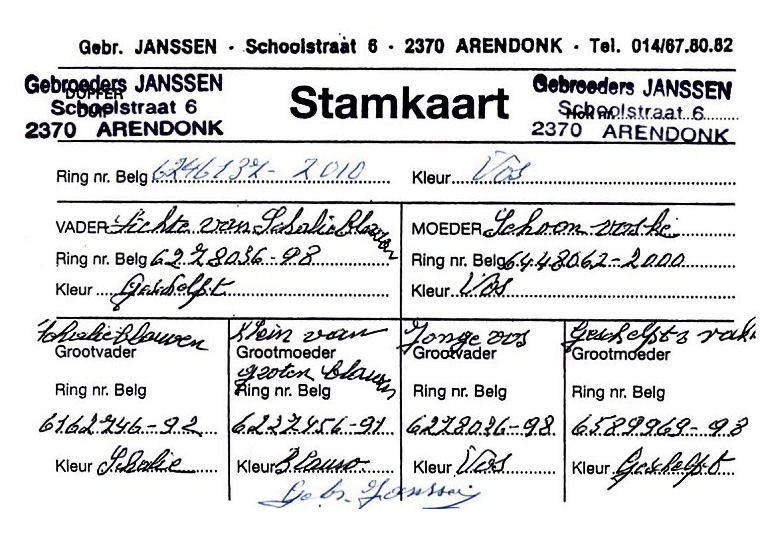 Gebr. JANSSEN · Schoolstraat 6 · 2370 ARENDONK · Tel. 014/67.80.82
Gebroeders JANSSEN
Schoolstraat 6
2370 ARENDONK
DOFFER
DUIF
Stamkaart
Gebroeders JANSSEN
Schoolstraat 6
2370 ARENDONK
Hok nr.
Ring nr. Belg 6246137-2010 Kleur Vos
VADER Lichte van Schalieblauwen
Ring nr. Belg 6278036-98
Kleur Geschelpt
MOEDER Schoon voske
Ring nr. Belg 6448062-2000
Kleur Vos
Schalieblauwen
Grootvader
Ring nr. Belg
6162746-92
Kleur Schalie
Klein van
Grootmoeder
groten Blauwen
Ring nr. Belg
6237456-91
Kleur Blauw
Jonge vos
Grootvader
Ring nr. Belg
6278036-98
Kleur Vos
Geschelpts
Grootmoeder
Ring nr. Belg
6589969-93
Kleur Geschelpt
Gebr. Janssen